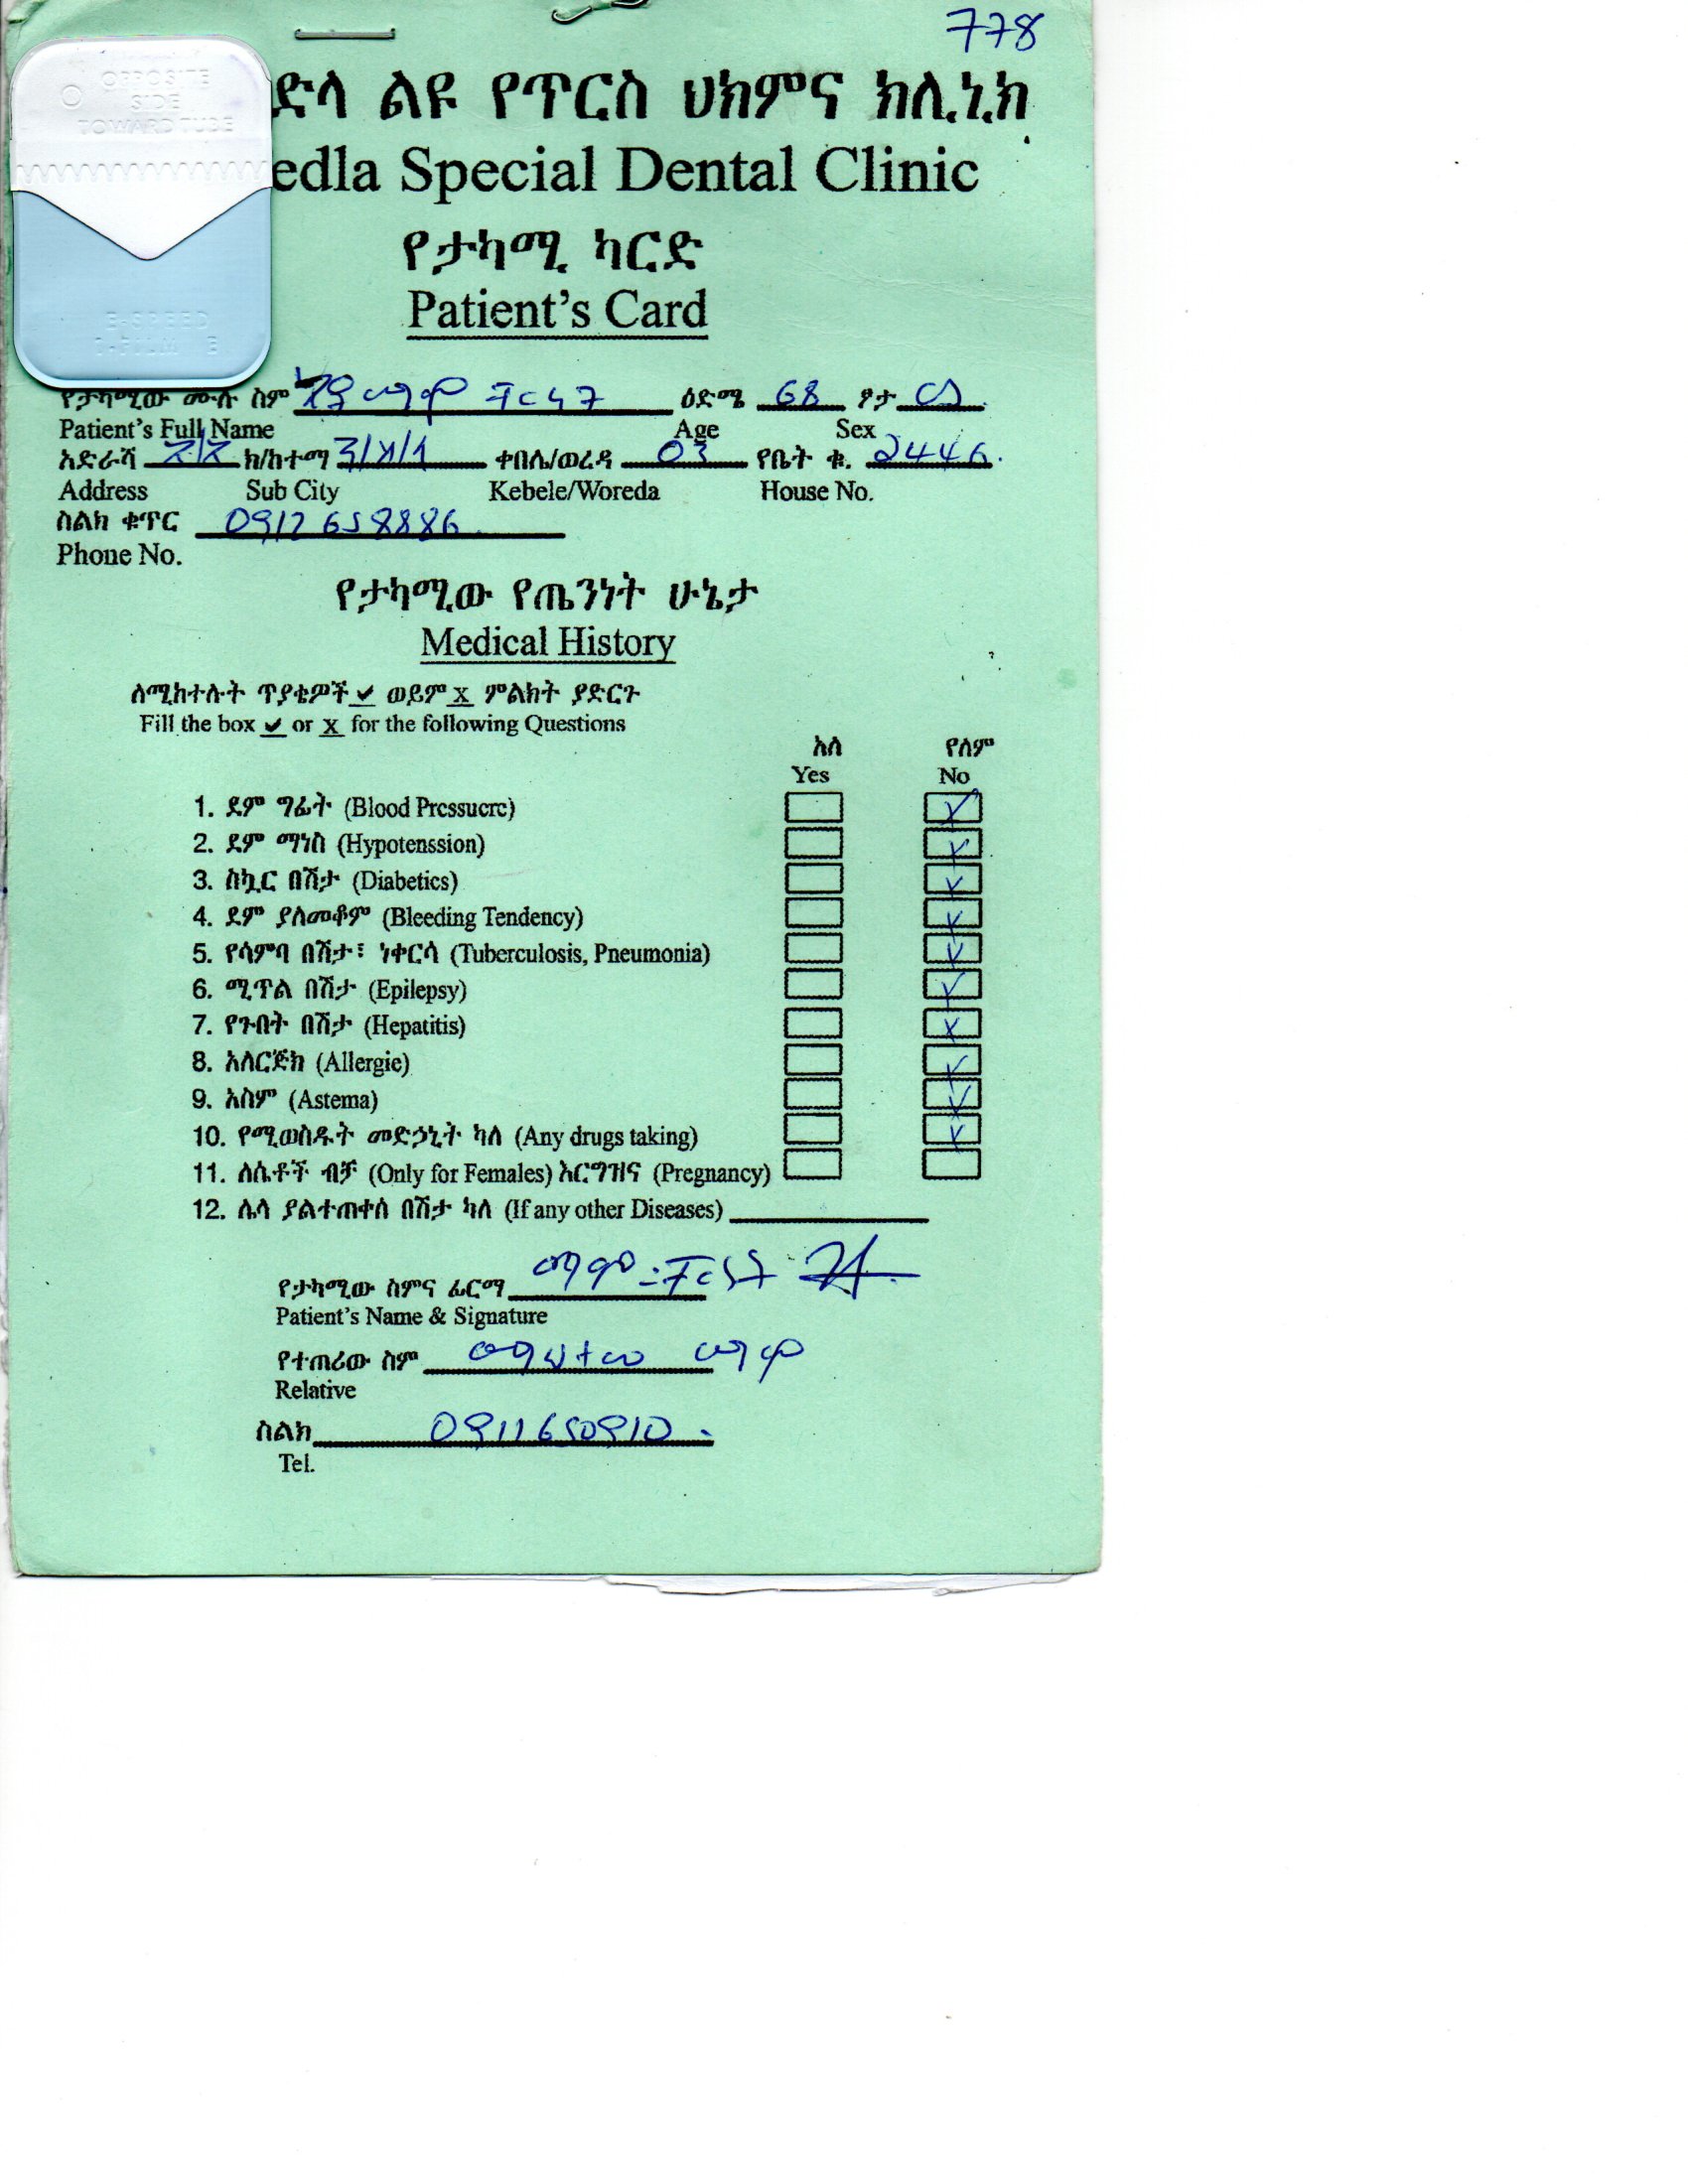 778
OPPOSITE
SIDE
TOWARD TUBE
ድላ ልዩ የጥርስ ህክምና ክሊኒክ
edla Special Dental Clinic
የታካሚ ካርድ
Patient's Card
የታካሚው ሙሉ ስም ዕድሜ 68 ፆታ
Patient's Full Name Age Sex
አድራሻ ክ/ከተማ ቀበሌ/ወረዳ 03 የቤት ቁ. 2446.
Address Sub City Kebele/Woreda House No.
ስልክ ቁጥር 0912658886
Phone No.
የታካሚው የጤንነት ሁኔታ
Medical History
ለሚከተሉት ጥያቄዎች ✔ ወይም X ምልክት ያድርጉ
Fill the box ✔ or X for the following Questions
አለ የለም
Yes No
1. ደም ግፊት (Blood Pressuere)
2. ደም ማነስ (Hypotenssion)
3. ስኳር በሽታ (Diabetics)
4. ደም ያለመቆም (Bleeding Tendency)
5. የሳምባ በሽታ፣ ነቀርሳ (Tuberculosis, Pneumonia)
6. ሚጥል በሽታ (Epilepsy)
7. የጉበት በሽታ (Hepatitis)
8. አለርጅክ (Allergie)
9. አስም (Astema)
10. የሚወስዱት መድኃኒት ካለ (Any drugs taking)
11. ለሴቶች ብቻ (Only for Females) እርግዝና (Pregnancy)
12. ሌላ ያልተጠቀሰ በሽታ ካለ (If any other Diseases)
የታካሚው ስምና ፊርማ
Patient's Name & Signature
የተጠሪው ስም
Relative
ስልክ 0911650910
Tel.